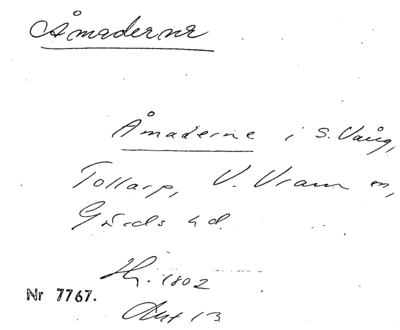 Åmaderne
Åmaderne i S. Vång,
Tollarp, V. Vram sn,
Gärds hd.
Hy. 1802
Nr 7767.
Akt 13